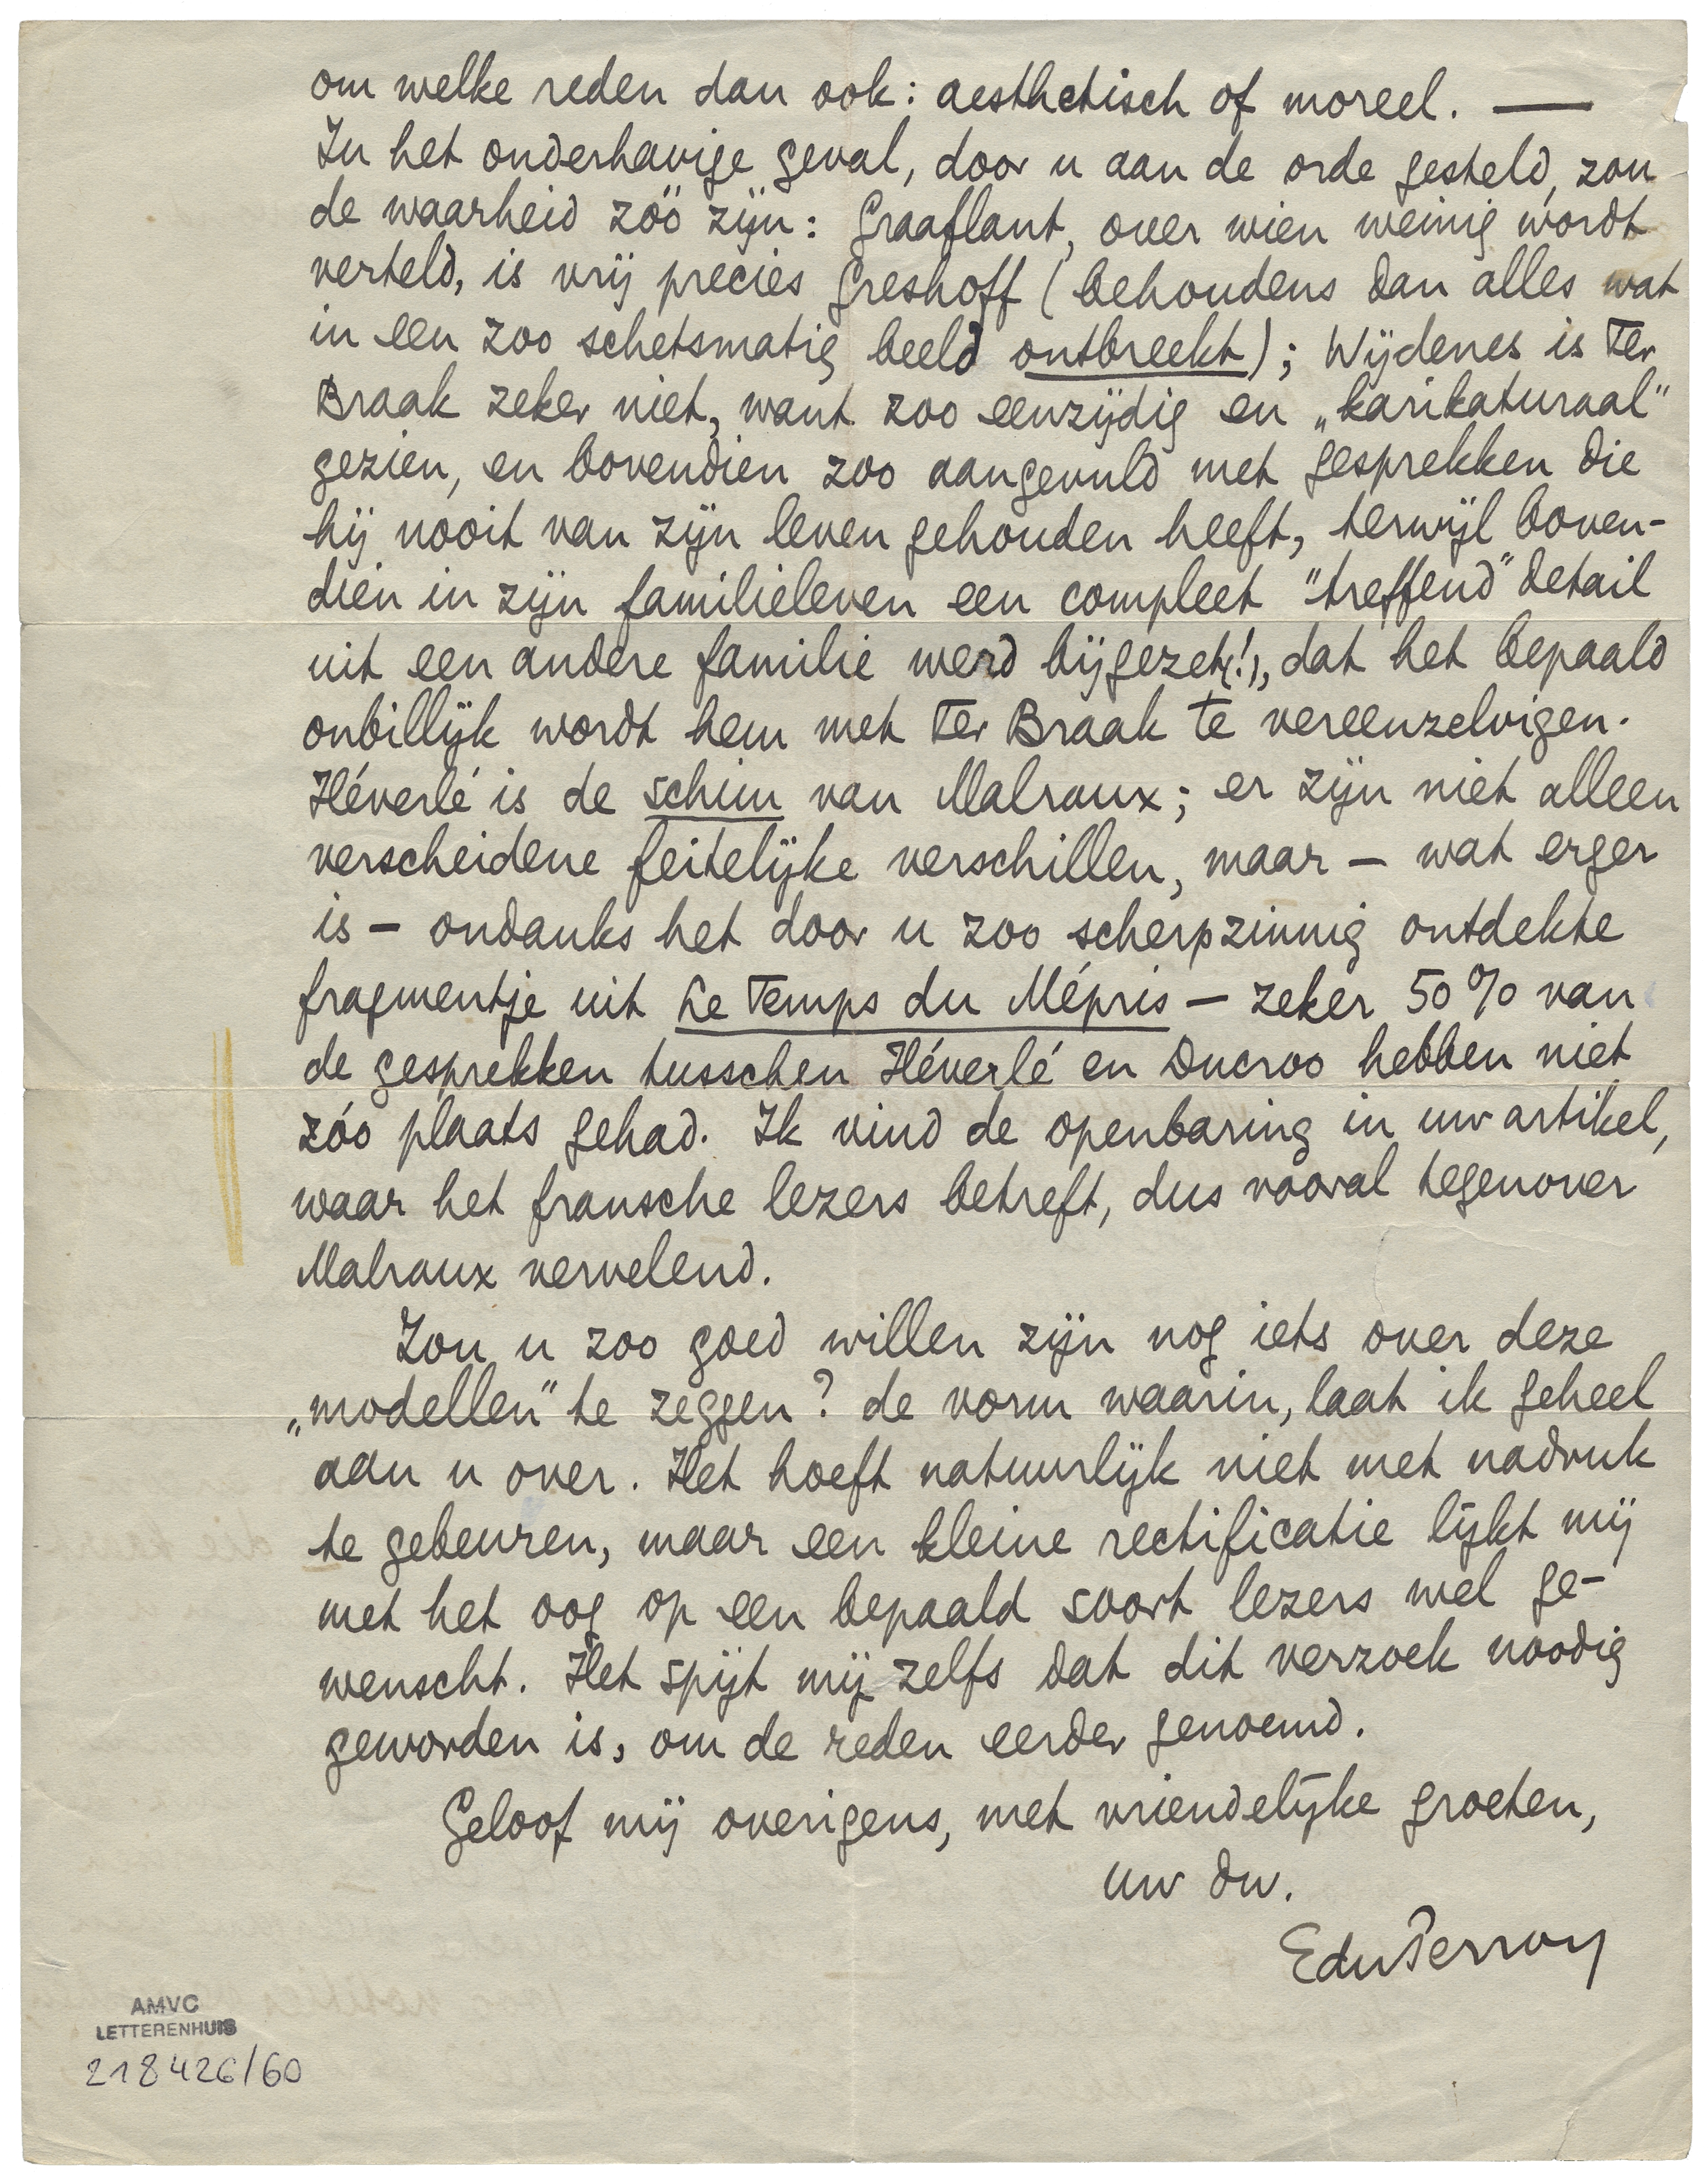 om welke reden dan ook: aesthetisch of moreel. —
In het onderhavige geval, door u aan de orde gesteld, zou
de waarheid zóó zijn: Graaflant, over wien weinig wordt
verteld, is vrij precies Greshoff (behoudens dan alles wat
in een zoo schetsmatig beeld ontbreekt); Wijdenes is Ter
Braak zeker niet, want zoo eenzijdig en „karikaturaal"
gezien, en bovendien zoo aangevuld met gesprekken die
hij nooit van zijn leven gehouden heeft, terwijl boven-
dien in zijn familieleven een compleet "treffend" detail
uit een andere familie werd bijgezet(!), dat het bepaald
onbillijk wordt hem met Ter Braak te vereenzelvigen.
Héverlé is de schim van Malraux; er zijn niet alleen
verscheidene feitelijke verschillen, maar — wat erger
is — ondanks het door u zoo scherpzinnig ontdekte
fragmentje uit Le Temps du Mépris — zeker 50% van
de gesprekken tusschen Héverlé en Ducroo hebben niet
zóo plaats gehad. Ik vind de openbaring in uw artikel,
waar het fransche lezers betreft, dus vooral tegenover
Malraux vervelend.
Zou u zoo goed willen zijn nog iets over deze
„modellen" te zeggen? de vorm waarin, laat ik geheel
aan u over. Het hoeft natuurlijk niet met nadruk
te gebeuren, maar een kleine rectificatie lijkt mij
met het oog op een bepaald soort lezers wel ge-
wenscht. Het spijt mij zelfs dat dit verzoek noodig
geworden is, om de reden eerder genoemd.
Geloof mij overigens, met vriendelijke groeten,
uw dw.
EduPerron
AMVC
LETTERENHUIS
218426/60